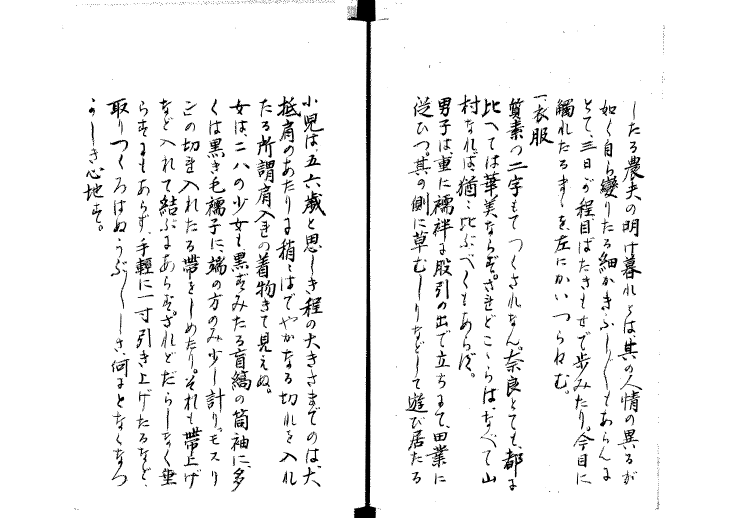 したる農夫の明け暮れとは其の人情の異るが
如く自ら變りたる細かきふし／＼もあらんま
とて、三日が程目ばたきもせで歩みたり。今目に
觸れたるまゝを左にかいつらねむ。
一衣服
質素の二字もてつくされなん。奈良とても、都ま
比べては華美ならぬぞ。されどこゝらは、なべて山
村なれば、猶ほ比ぶべくもあらず。
男子は、重に襦袢ま股引の出で立ちまて、田業に
從ひつ。其の側に草むしりなどして遊び居たる
小児は五六歳と思しき程の大きさまでのは、大
抵肩のあたりま稍々はでやかなる切れを入れ
たる所謂肩入れの着物きて見えぬ。
女は、二八の少女も、黒ずみたる盲縞の筒袖に、多
くは黒き毛襦子に、端の方のみ少し計り。モスリ
ンの切れ入れたる帶をしめたり。それも帶上げ
など入れて結ぶまあらず。されどだらしなく垂
らすまもあらず、手輕に一寸引き上げたるなど、
取りつくろはぬうぶ／＼しさ、何まとなくなつ
かしき心地す。